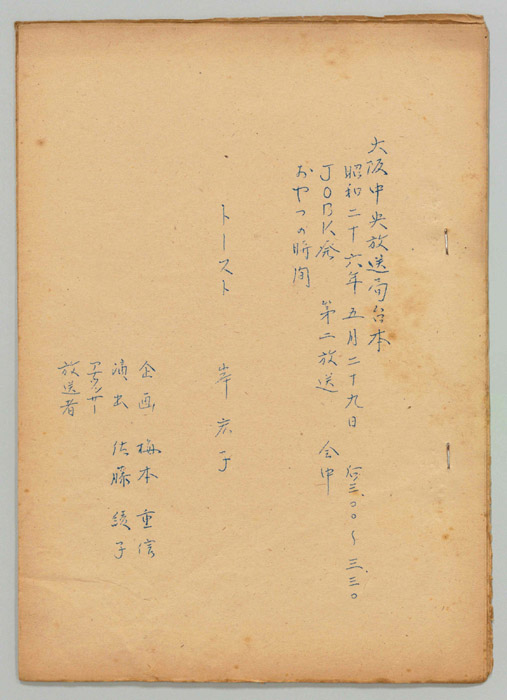 大阪中央放送局台本
昭和二十六年五月二十九日 后三.〇〇〜三.三〇
JOBK発 第二放送 全中
おやつの時間
トースト 岸宏子
企画 梅本重信
演出 佐藤綾子
アナウンサー
放送者